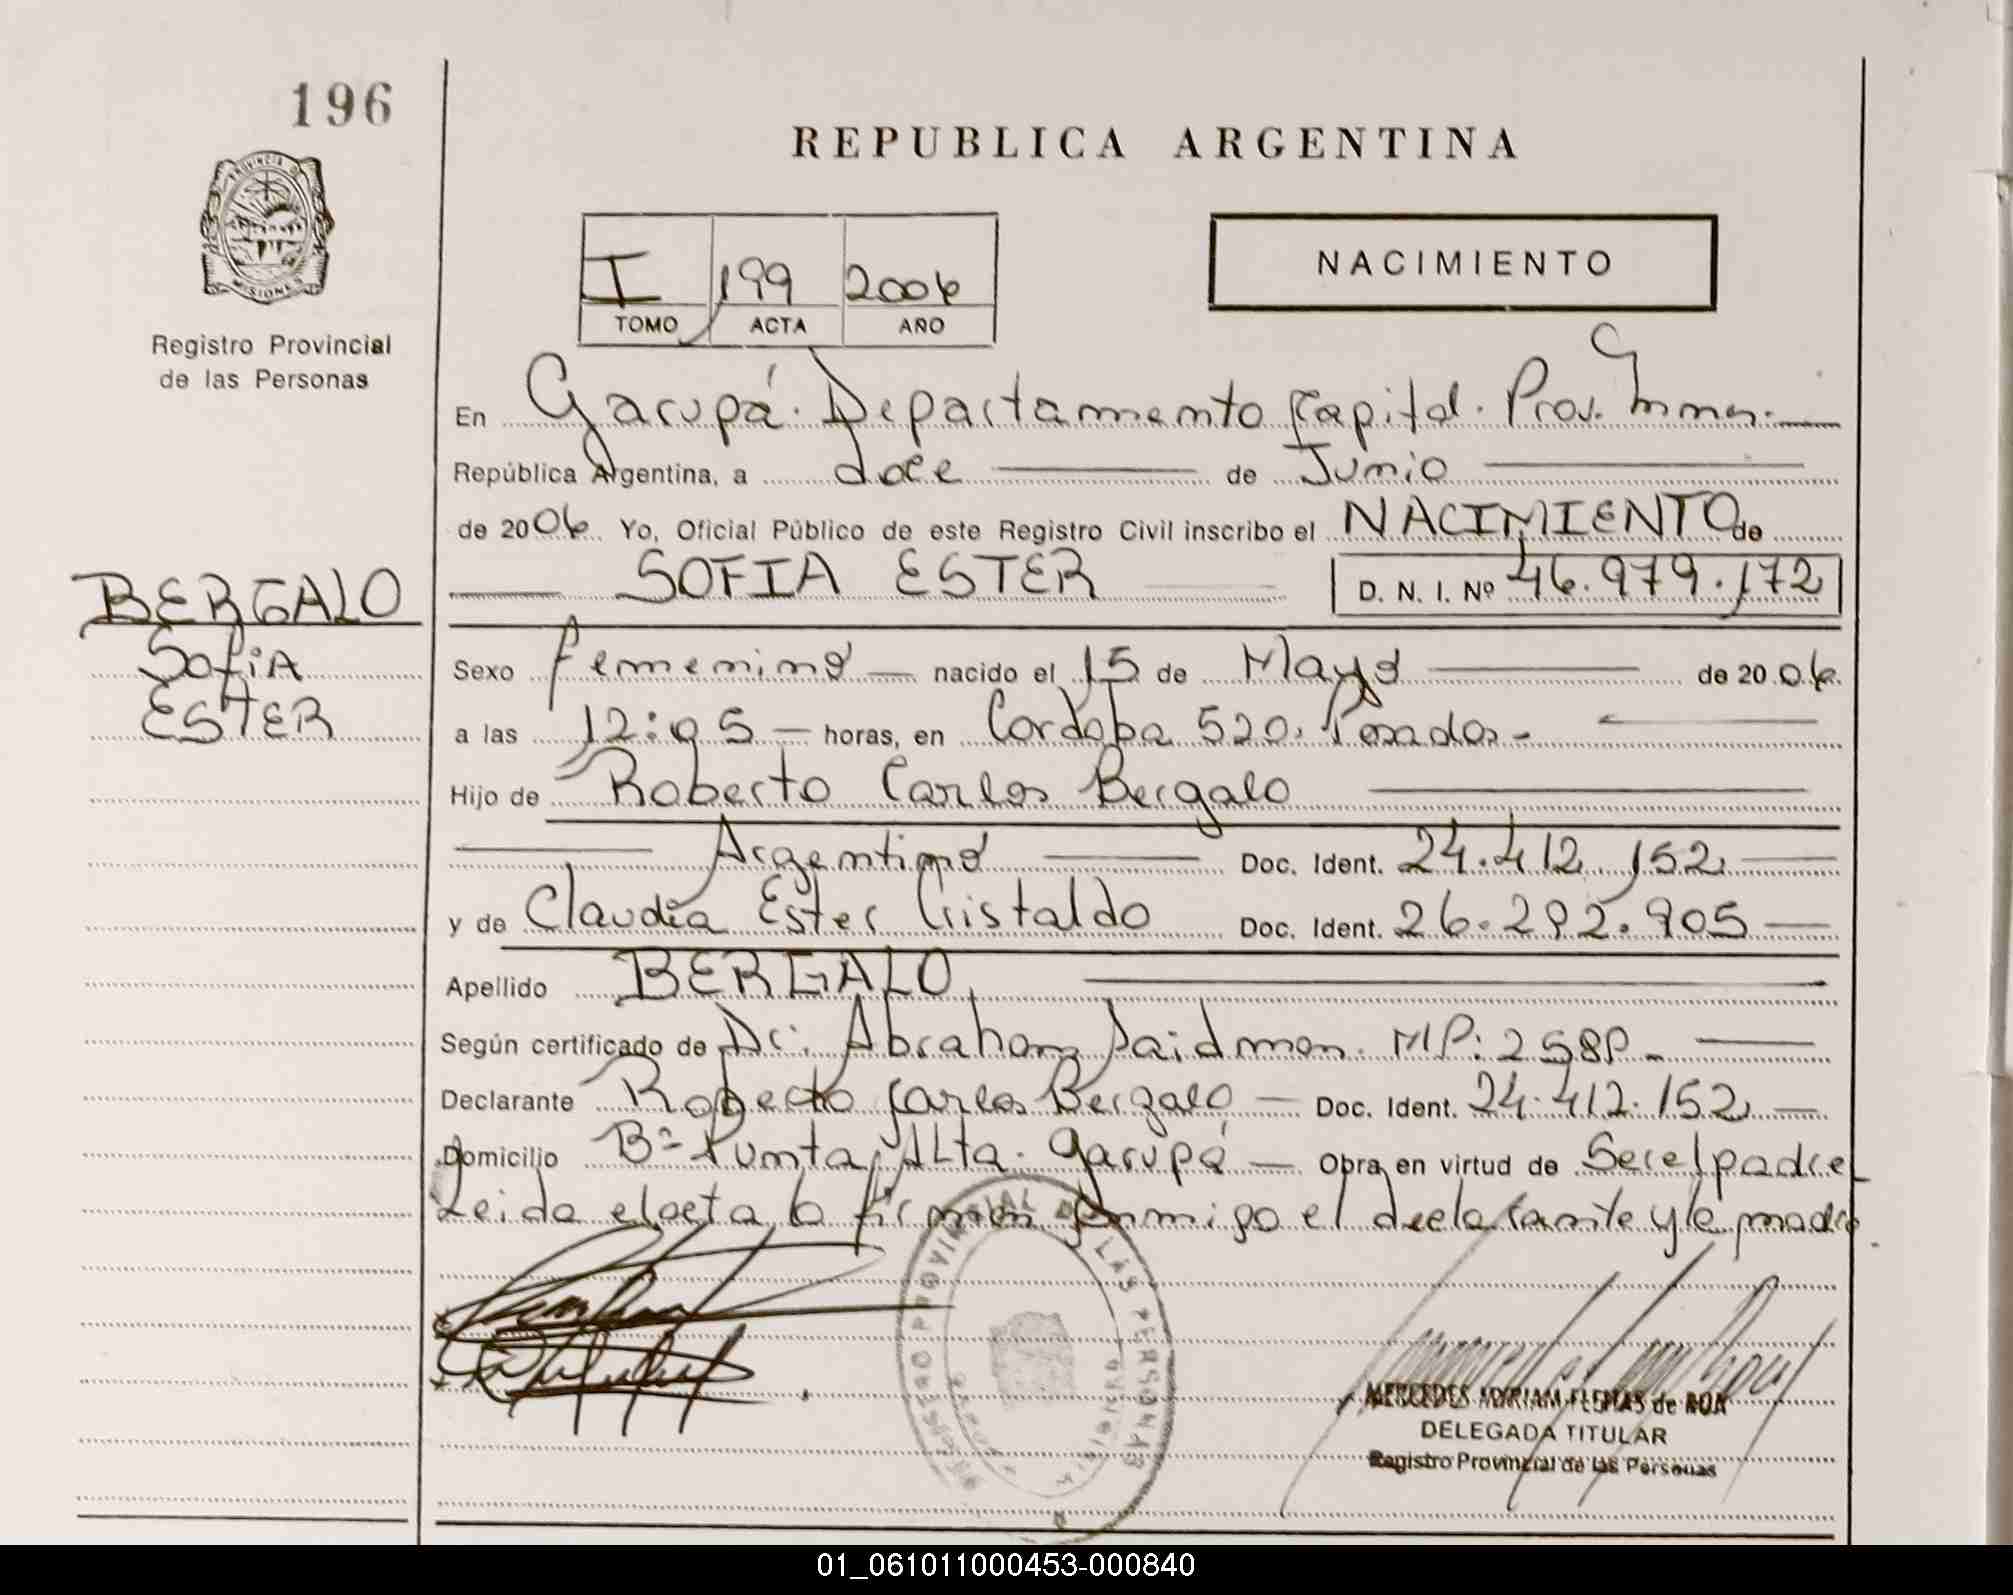 196
REPUBLICA ARGENTINA
PROVINCIA DE
MISIONES
Registro Provincial
de las Personas
I 199 2006
TOMO ACTA AÑO
NACIMIENTO
En Garupá. Departamento Capital. Prov. Mnes.
República Argentina, a doce de Junio
de 2006 Yo, Oficial Público de este Registro Civil inscribo el NACIMIENTO de
SOFIA ESTER D. N. I. Nº 46.979.172
BERGALO
Sofia
ESTER
Sexo Femenino nacido el 15 de Mayo de 2006
a las 12:05 horas, en Cordoba 520. Posadas
Hijo de Roberto Carlos Bergalo
Argentino Doc. Ident. 24.412.152
y de Claudia Ester Cristaldo Doc. Ident. 26.292.905
Apellido BERGALO
Según certificado de Dr. Abraham Saidman. MP: 2589
Declarante Roberto Carlos Bergalo Doc. Ident. 24.412.152
Domicilio Bº Punta Alta. Garupá Obra en virtud de Ser el padre
Leida el acta la firman conmigo el declarante y la madre
REGISTRO PROVINCIAL DE LAS PERSONAS
MERCEDES MYRIAM de ROA
DELEGADA TITULAR
Registro Provincial de las Personas
01_061011000453-000840